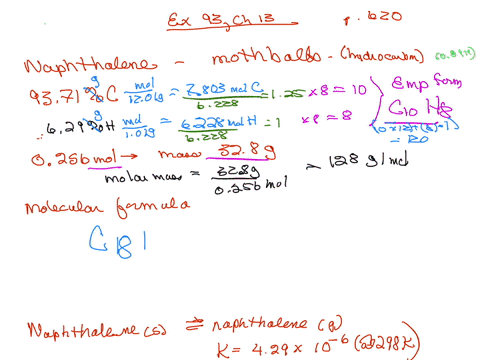 Ex 93, Ch 13 p. 620
Naphthalene - mothballs - (hydrocarbon)
93.71 % g C mol/12.01g = 7.803 mol C / 6.228 = 1.25 x8 = 10
Emp form
C10 H8
6.29 % g H mol/1.01g = 6.228 mol H / 6.228 = 1 x8 = 8
0.256 mol → mass 32.8 g
molar mass = 32.8g / 0.256 mol = 128 g/mol
molecular formula
C
Naphthalene(s) ⇌ naphthalene (g)
K = 4.29 x 10⁻⁶ (@298K)